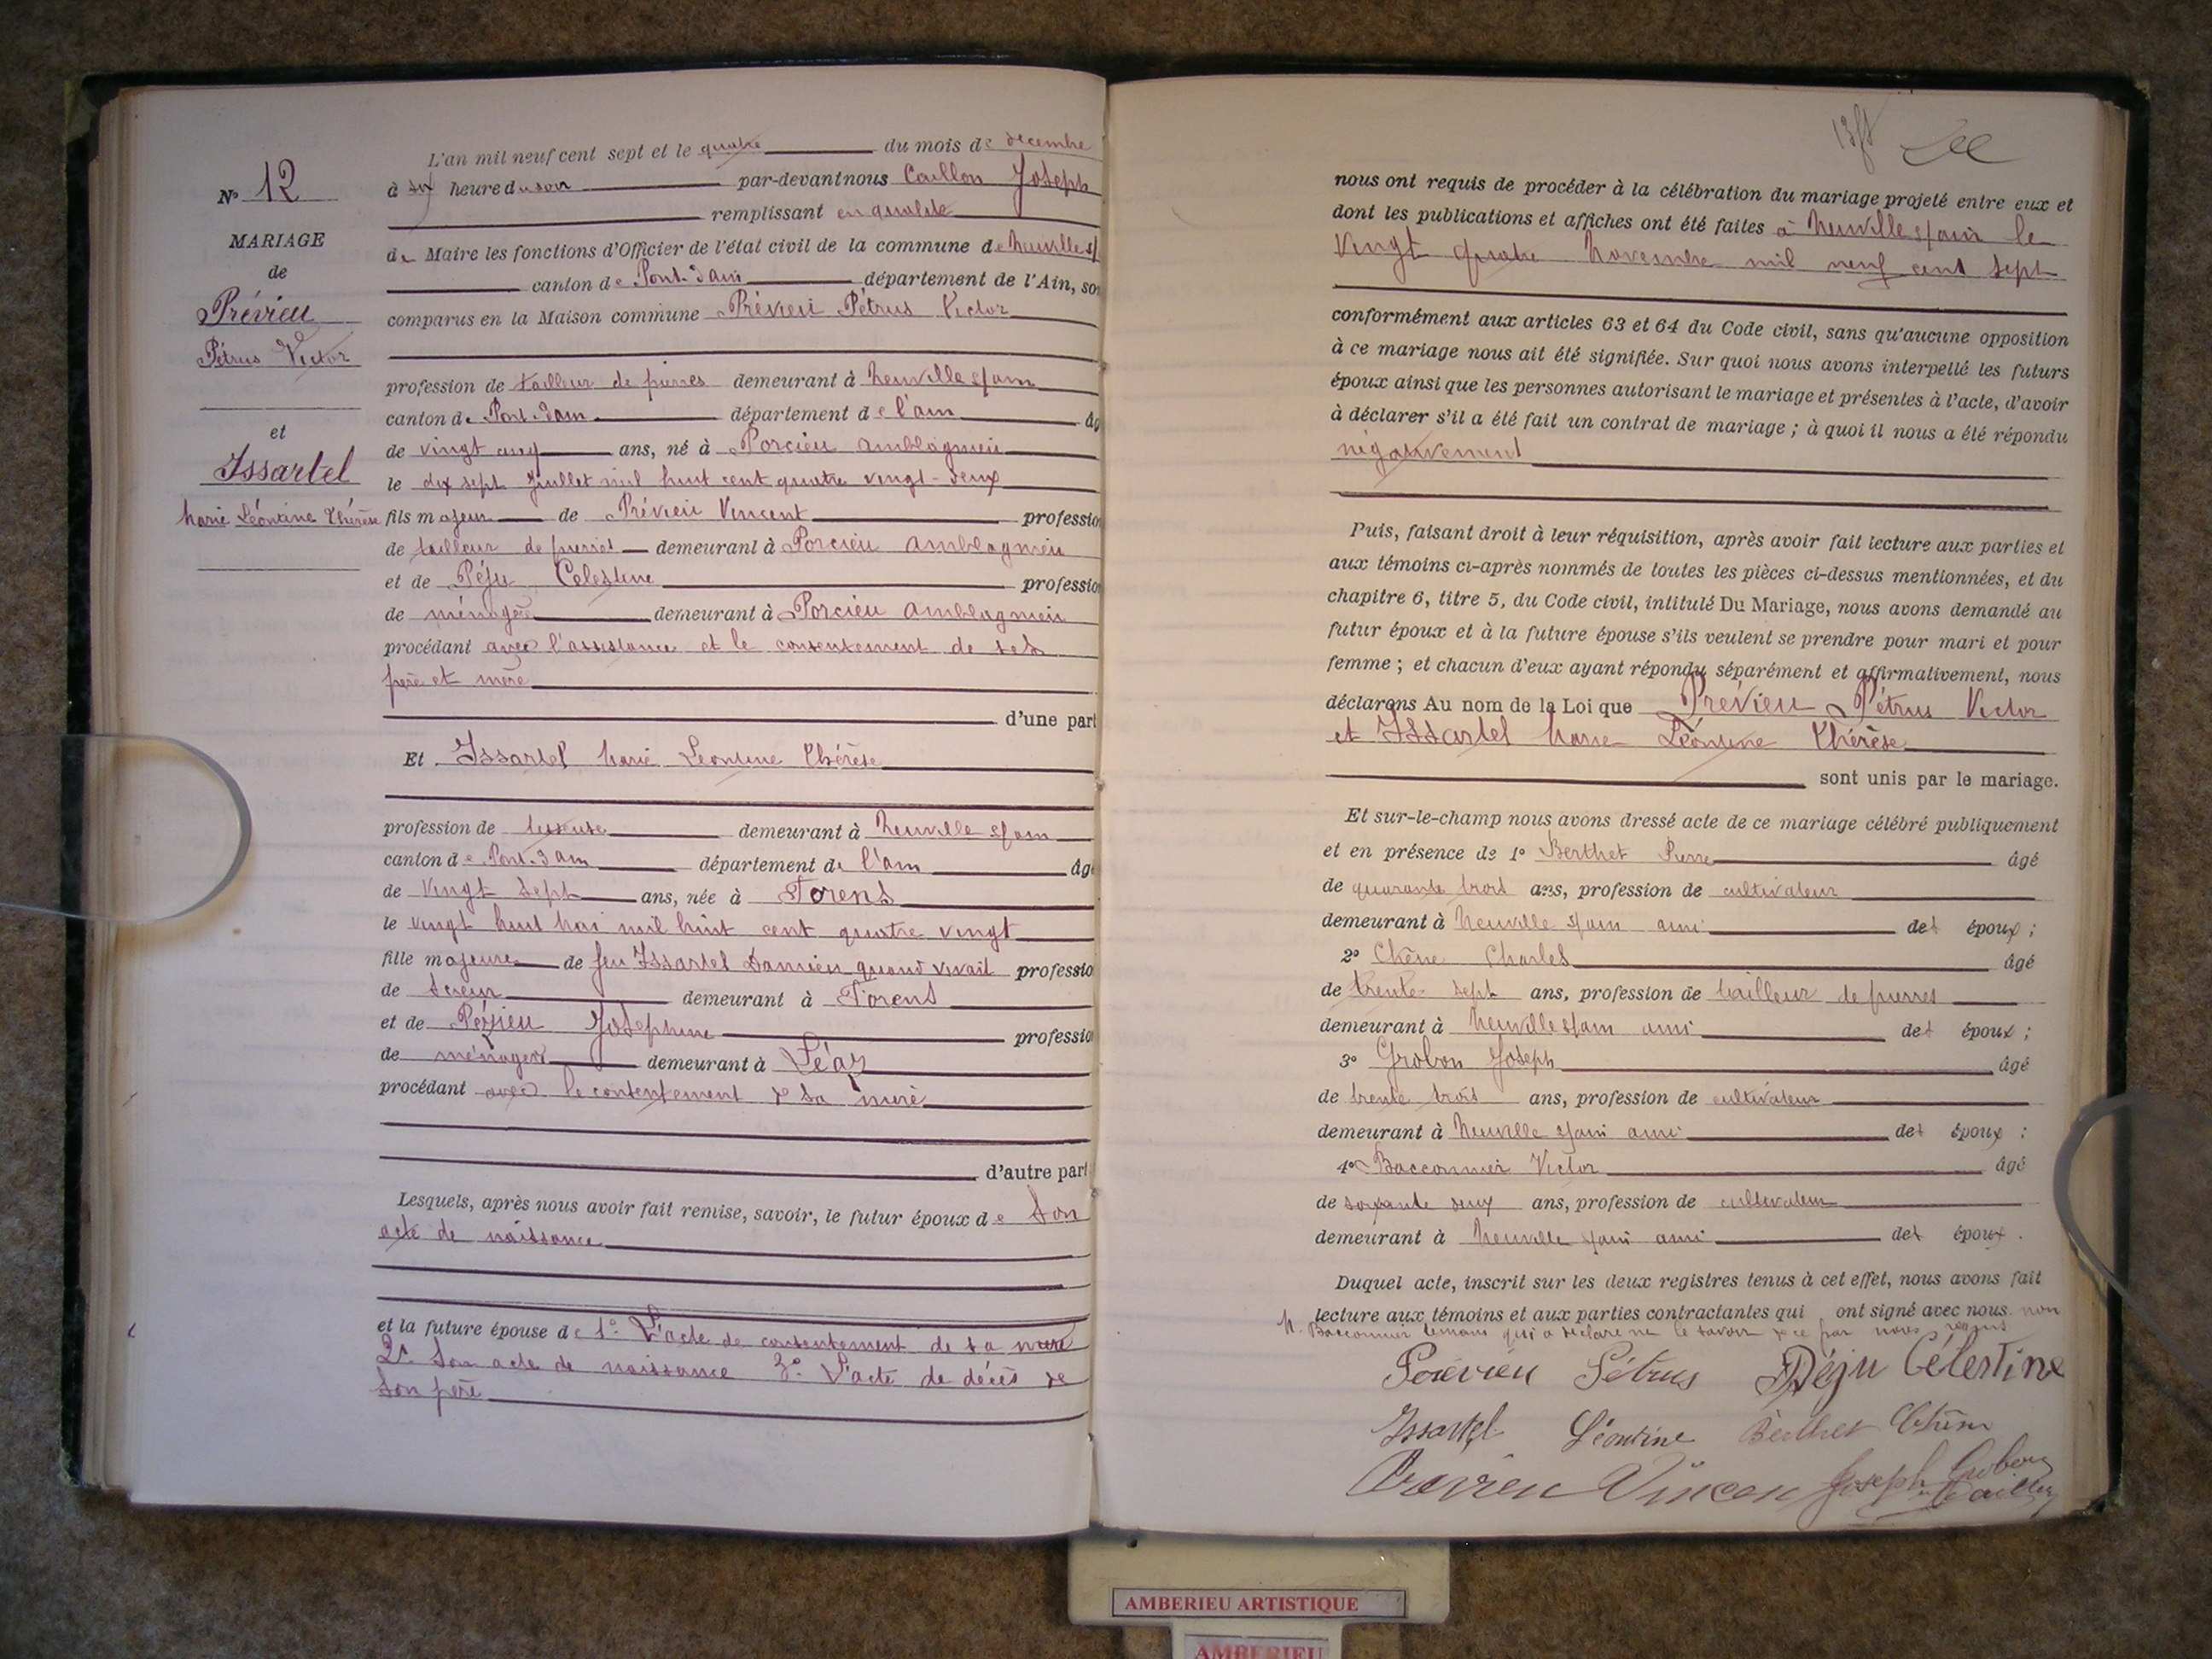 N° 12
MARIAGE
de
Prévieu
Pétrus Victor
et
Issartel
Marie Léontine Thérèse
L'an mil neuf cent sept et le quatre du mois de décembre
à six heure du soir par-devant nous Caillon Joseph
remplissant en qualité
de Maire les fonctions d'Officier de l'état civil de la commune de Neuville s/
canton de Pont-d'ain département de l'Ain, son
comparus en la Maison commune Prévieu Pétrus Victor
profession de tailleur de pierres demeurant à Neuville s/ain
canton de Pont-d'ain département de l'ain âg
de vingt cinq ans, né à Porcieu amblagnieu
le dix sept Juillet mil huit cent quatre vingt-deux
fils majeur de Prévieu Vincent professio
de tailleur de pierres demeurant à Porcieu amblagnieu
et de Péju Celestine professio
de ménagère demeurant à Porcieu amblagnieu
procédant avec l'assistance et le consentement de ses
père et mère
d'une part
Et Issartel Marie Léontine Thérèse
profession de demeurant à Neuville s/ain
canton de Pont-d'ain département de l'ain âgé
de vingt sept ans, née à Torens
le vingt huit Mai mil huit cent quatre vingt
fille majeure de feu Issartel Damien quand vivait professio
de scieur demeurant à Torens
et de Joséphine professio
de ménagère demeurant à Léaz
procédant avec le consentement de sa mère
d'autre part
Lesquels, après nous avoir fait remise, savoir, le futur époux de son
acte de naissance
et la future épouse de 1° L'acte de consentement de sa mère
2° Son acte de naissance 3° L'acte de décès de
son père
nous ont requis de procéder à la célébration du mariage projeté entre eux et
dont les publications et affiches ont été faites à Neuville s/ain le
vingt quatre Novembre mil neuf cent sept
conformément aux articles 63 et 64 du Code civil, sans qu'aucune opposition
à ce mariage nous ait été signifiée. Sur quoi nous avons interpellé les futurs
époux ainsi que les personnes autorisant le mariage et présentes à l'acte, d'avoir
à déclarer s'il a été fait un contrat de mariage ; à quoi il nous a été répondu
négativement
Puis, faisant droit à leur réquisition, après avoir fait lecture aux parties et
aux témoins ci-après nommés de toutes les pièces ci-dessus mentionnées, et du
chapitre 6, titre 5, du Code civil, intitulé Du Mariage, nous avons demandé au
futur époux et à la future épouse s'ils veulent se prendre pour mari et pour
femme ; et chacun d'eux ayant répondu séparément et affirmativement, nous
déclarons Au nom de la Loi que Prévieu Pétrus Victor
et Issartel Marie Léontine Thérèse
sont unis par le mariage.
Et sur-le-champ nous avons dressé acte de ce mariage célébré publiquement
et en présence de 1° Berthet Pierre âgé
de quarante trois ans, profession de cultivateur
demeurant à Neuville s/ain ami des époux ;
2° Chêne Charles âgé
de trente sept ans, profession de tailleur de pierres
demeurant à Neuville s/ain ami des époux ;
3° Grobon Joseph âgé
de trente trois ans, profession de cultivateur
demeurant à Neuville s/ain ami des époux ;
4° Bacconnier Victor âgé
de soixante deux ans, profession de cultivateur
demeurant à Neuville s/ain ami des époux.
Duquel acte, inscrit sur les deux registres tenus à cet effet, nous avons fait
lecture aux témoins et aux parties contractantes qui ont signé avec nous non
M. Bacconnier témoin qui a déclaré ne le savoir de ce par nous requis
Prévieu Pétrus Péju Célestine
Issartel Léontine Berthet Chêne
Prévieu Vincen Joseph Grobon
Caillon
AMBERIEU ARTISTIQUE
AMBERIEU